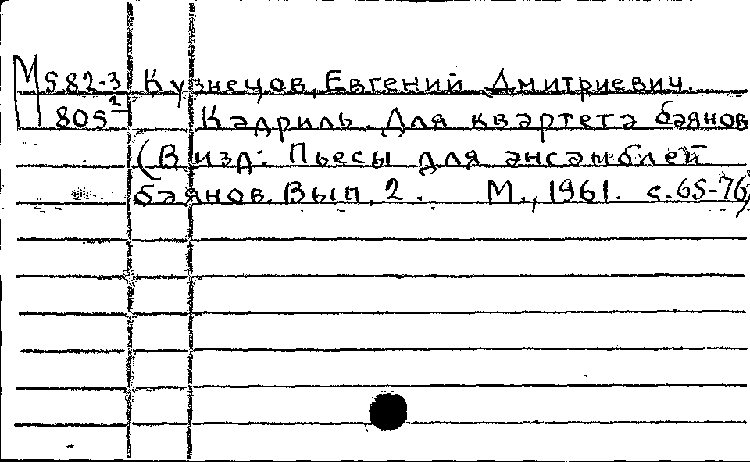 М 582-3 Кузнецов, Евгений Дмитриевич.
805² Кадриль. Для квартета баянов
(В изд: Пьесы для ансамблей
баянов. Вып. 2. М., 1961. с.65-76)